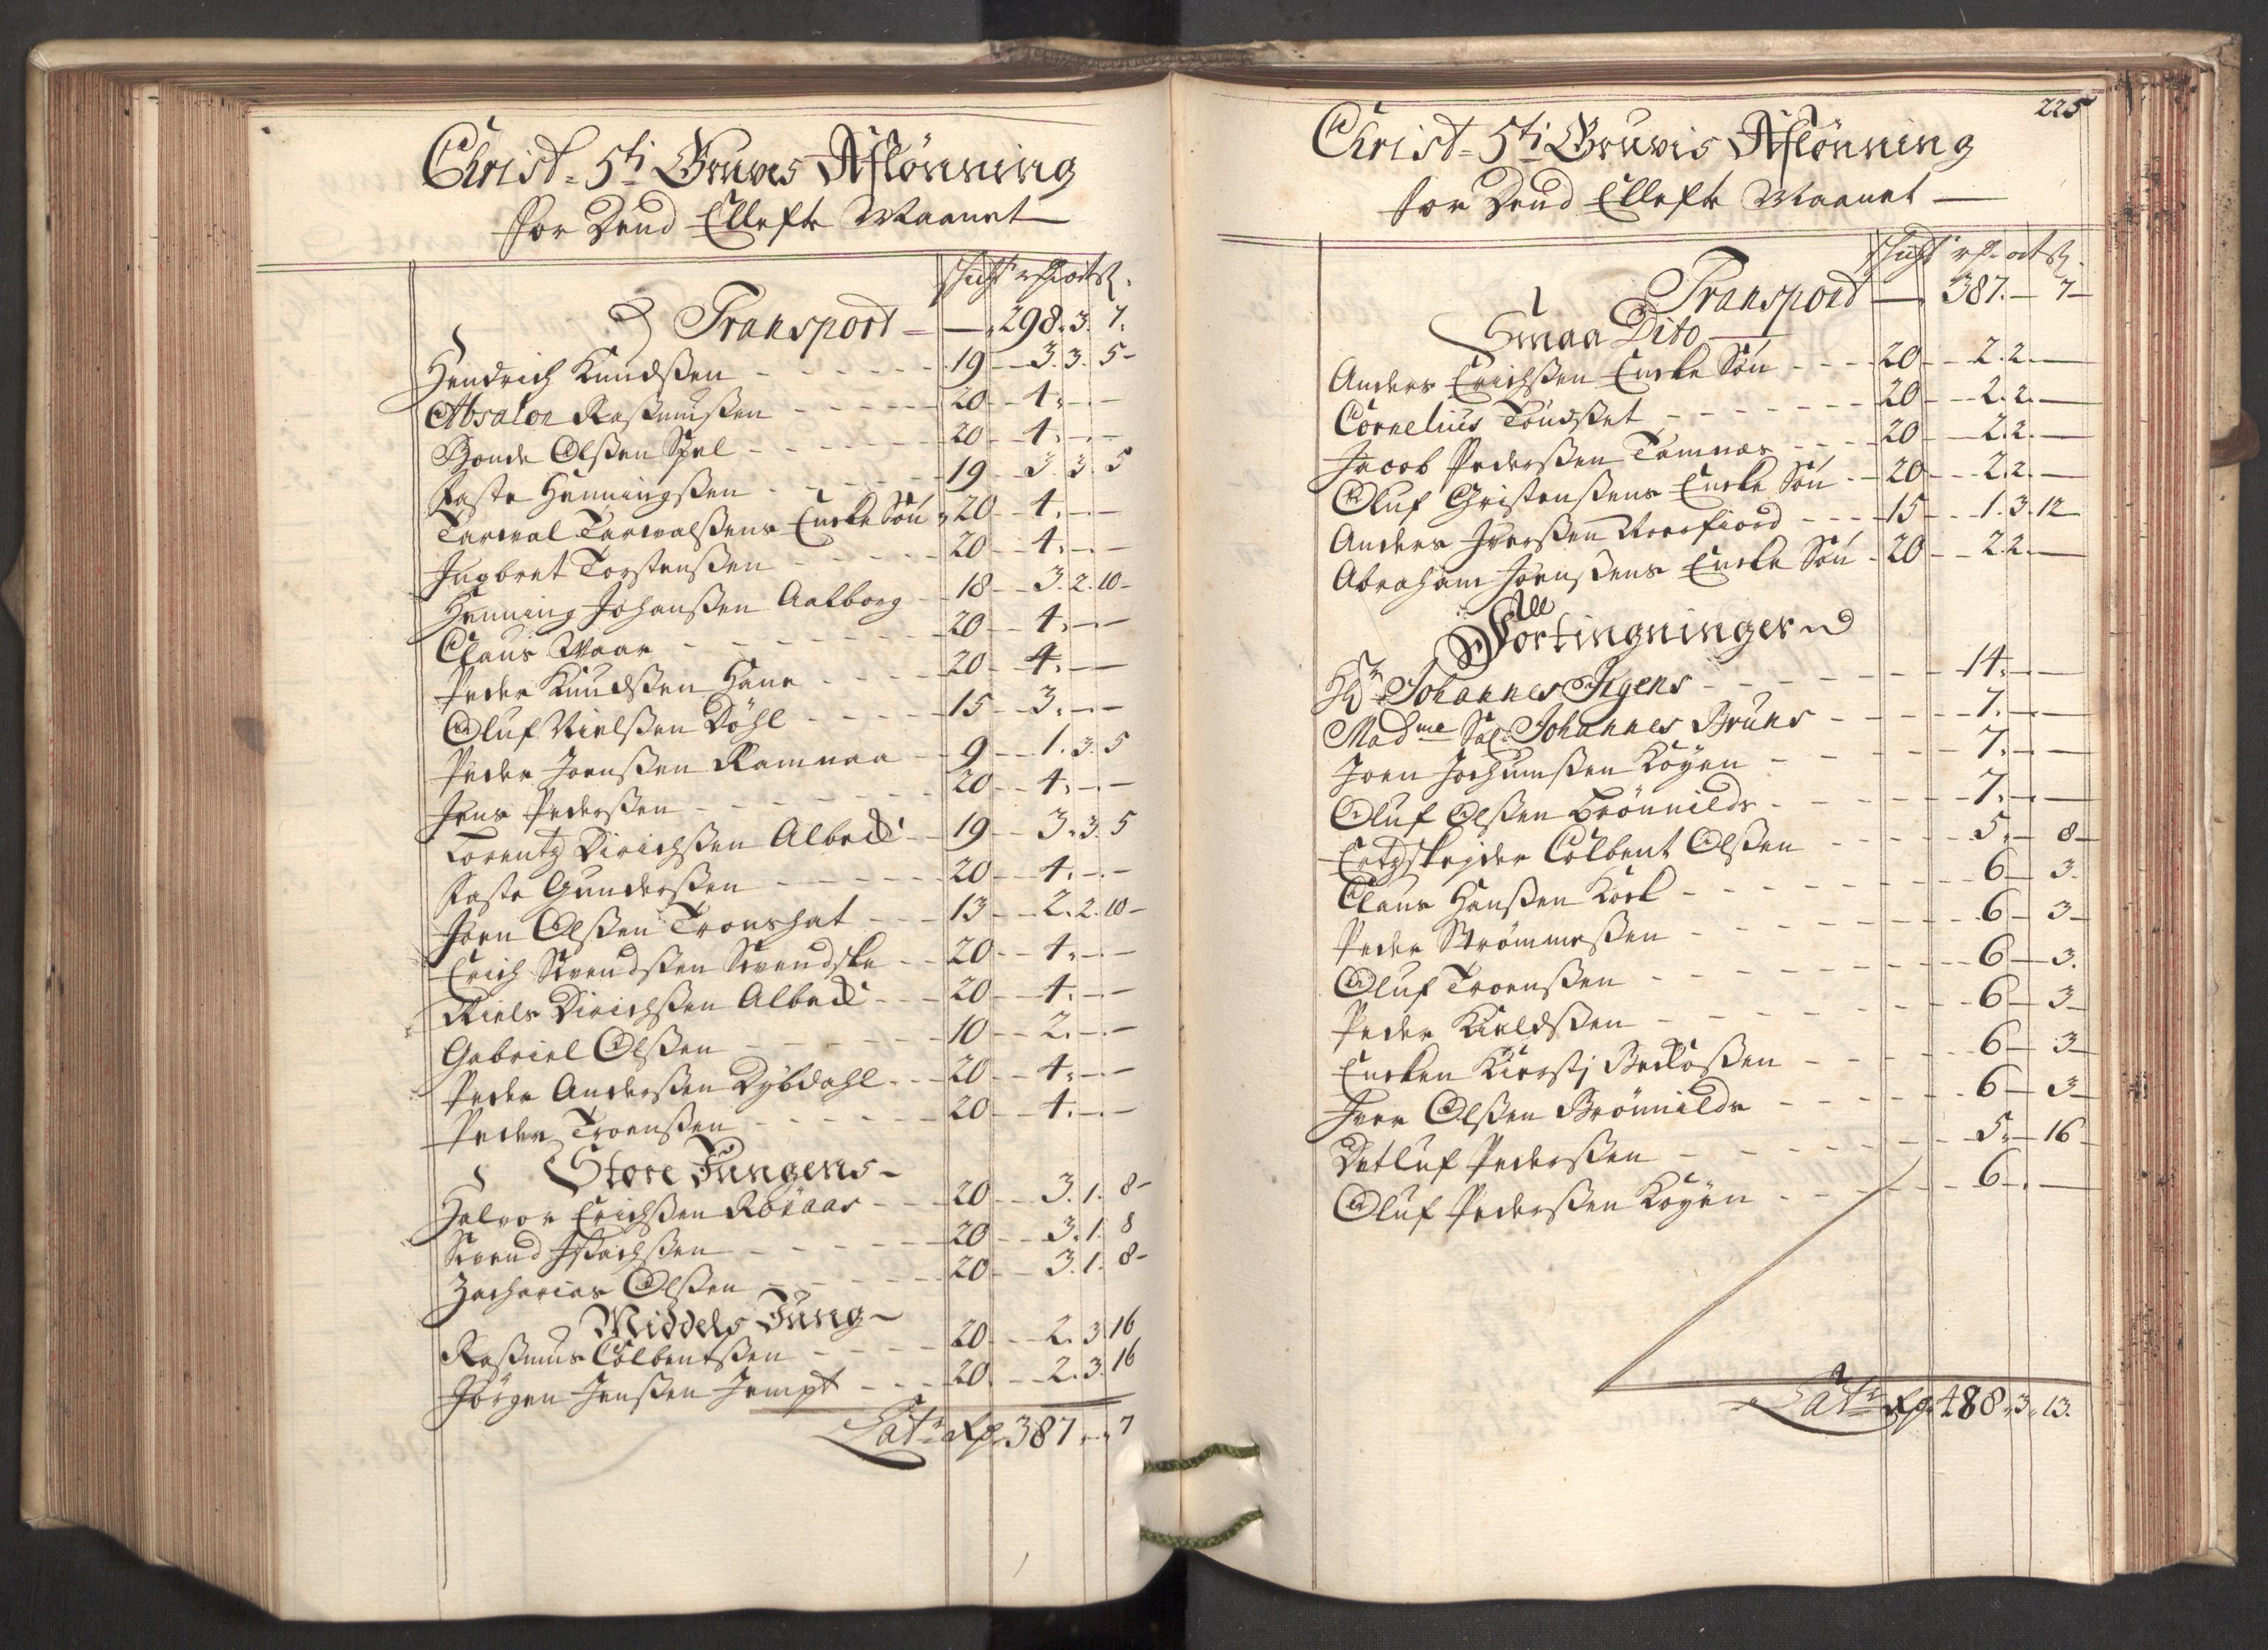 Christ. 5ti Gruves Aflönning
for Dend Ellefte Maanet
Schicht rdr ort ß.
Transport — 298. 3. 7.
Hendrich Knudsßen 19 3. 3. 5
Absalon Raßmußen 20 4. – –
Bonde Olßen Spel 20 4. – –
Faste Henningsßen 19 3. 3. 5
Tarwal Tarwalßens Encke Søn 20 4. – –
Ingbret Torstensßen 20 4. – –
Henning Johanßen Aalborg 18 3. 2. 10
Claus Waar 20 4. – –
Peder Knudsßen Hane 20 4. – –
Oluf Nielßen Döhl 15 3. – –
Peder Joenßen Ramnaa 9 1. 3. 5
Jens Pederßen 20 4. – –
Lorentz Dirichßen Albret 19 3. 3. 5
Faste Gunderßen 20 4. – –
Joen Olßen Tronshat 13 2. 2. 10
Erich Svendßen Svendske 20 4. – –
Niels Dirichßen Albret 20 4. – –
Gabriel Olßen 10 2. – –
Peder Anderßen Dybdahl 20 4. – –
Peder Troenßen 20 4. – –
Store Jungens
Halvor Erichßen Röraas 20 3. 1. 8
Svend Isachßen 20 3. 1. 8
Zacharias Olßen 20 3. 1. 8
Middels Jung
Raßmus Colbentßen 20 2. 3. 16
Jörgen Jenßen Jempt 20 2. 3. 16
Lats Rdr 387. – 7
225
Christ. 5ti Gruvis Aflönning
for Dend Ellefte Maanet
Schicht rdr ort ß.
Transport — 387. – 7
Smaa Dito
Anders Erichßen Encke Søn 20 2. 2. –
Cornelius Töndset 20 2. 2. –
Jacob Pederßen Tamnæs 20 2. 2. –
Oluf Christenßens Encke Søn 20 2. 2. –
Anders Iverßen Noerfiord 15 1. 3. 12
Abraham Joenßens Encke Søn 20 2. 2. –
Alle
Fortingninger
Hr Johannes Irgens 14. – –
Madme Sal. Johannes Bruns 7. – –
Joen Jochumßen Koyen 7. – –
Oluf Olßen Brönnilds 7. – –
Ertzskejder Colbent Olßen 5. – 8
Claus Hanßen Kock 6 – 3
Peder Strömmeßen 6 – 3
Oluf Troenßen 6 – 3
Peder Kieldßen 6 – 3
Encken Kiersti 6 – 3
Iver Olßen Brönnilds 6 – 3
Detluf Pederßen 5. – 16
Oluf Pederßen Koyen 6 – –
Lats Rdr 488. 3. 13.